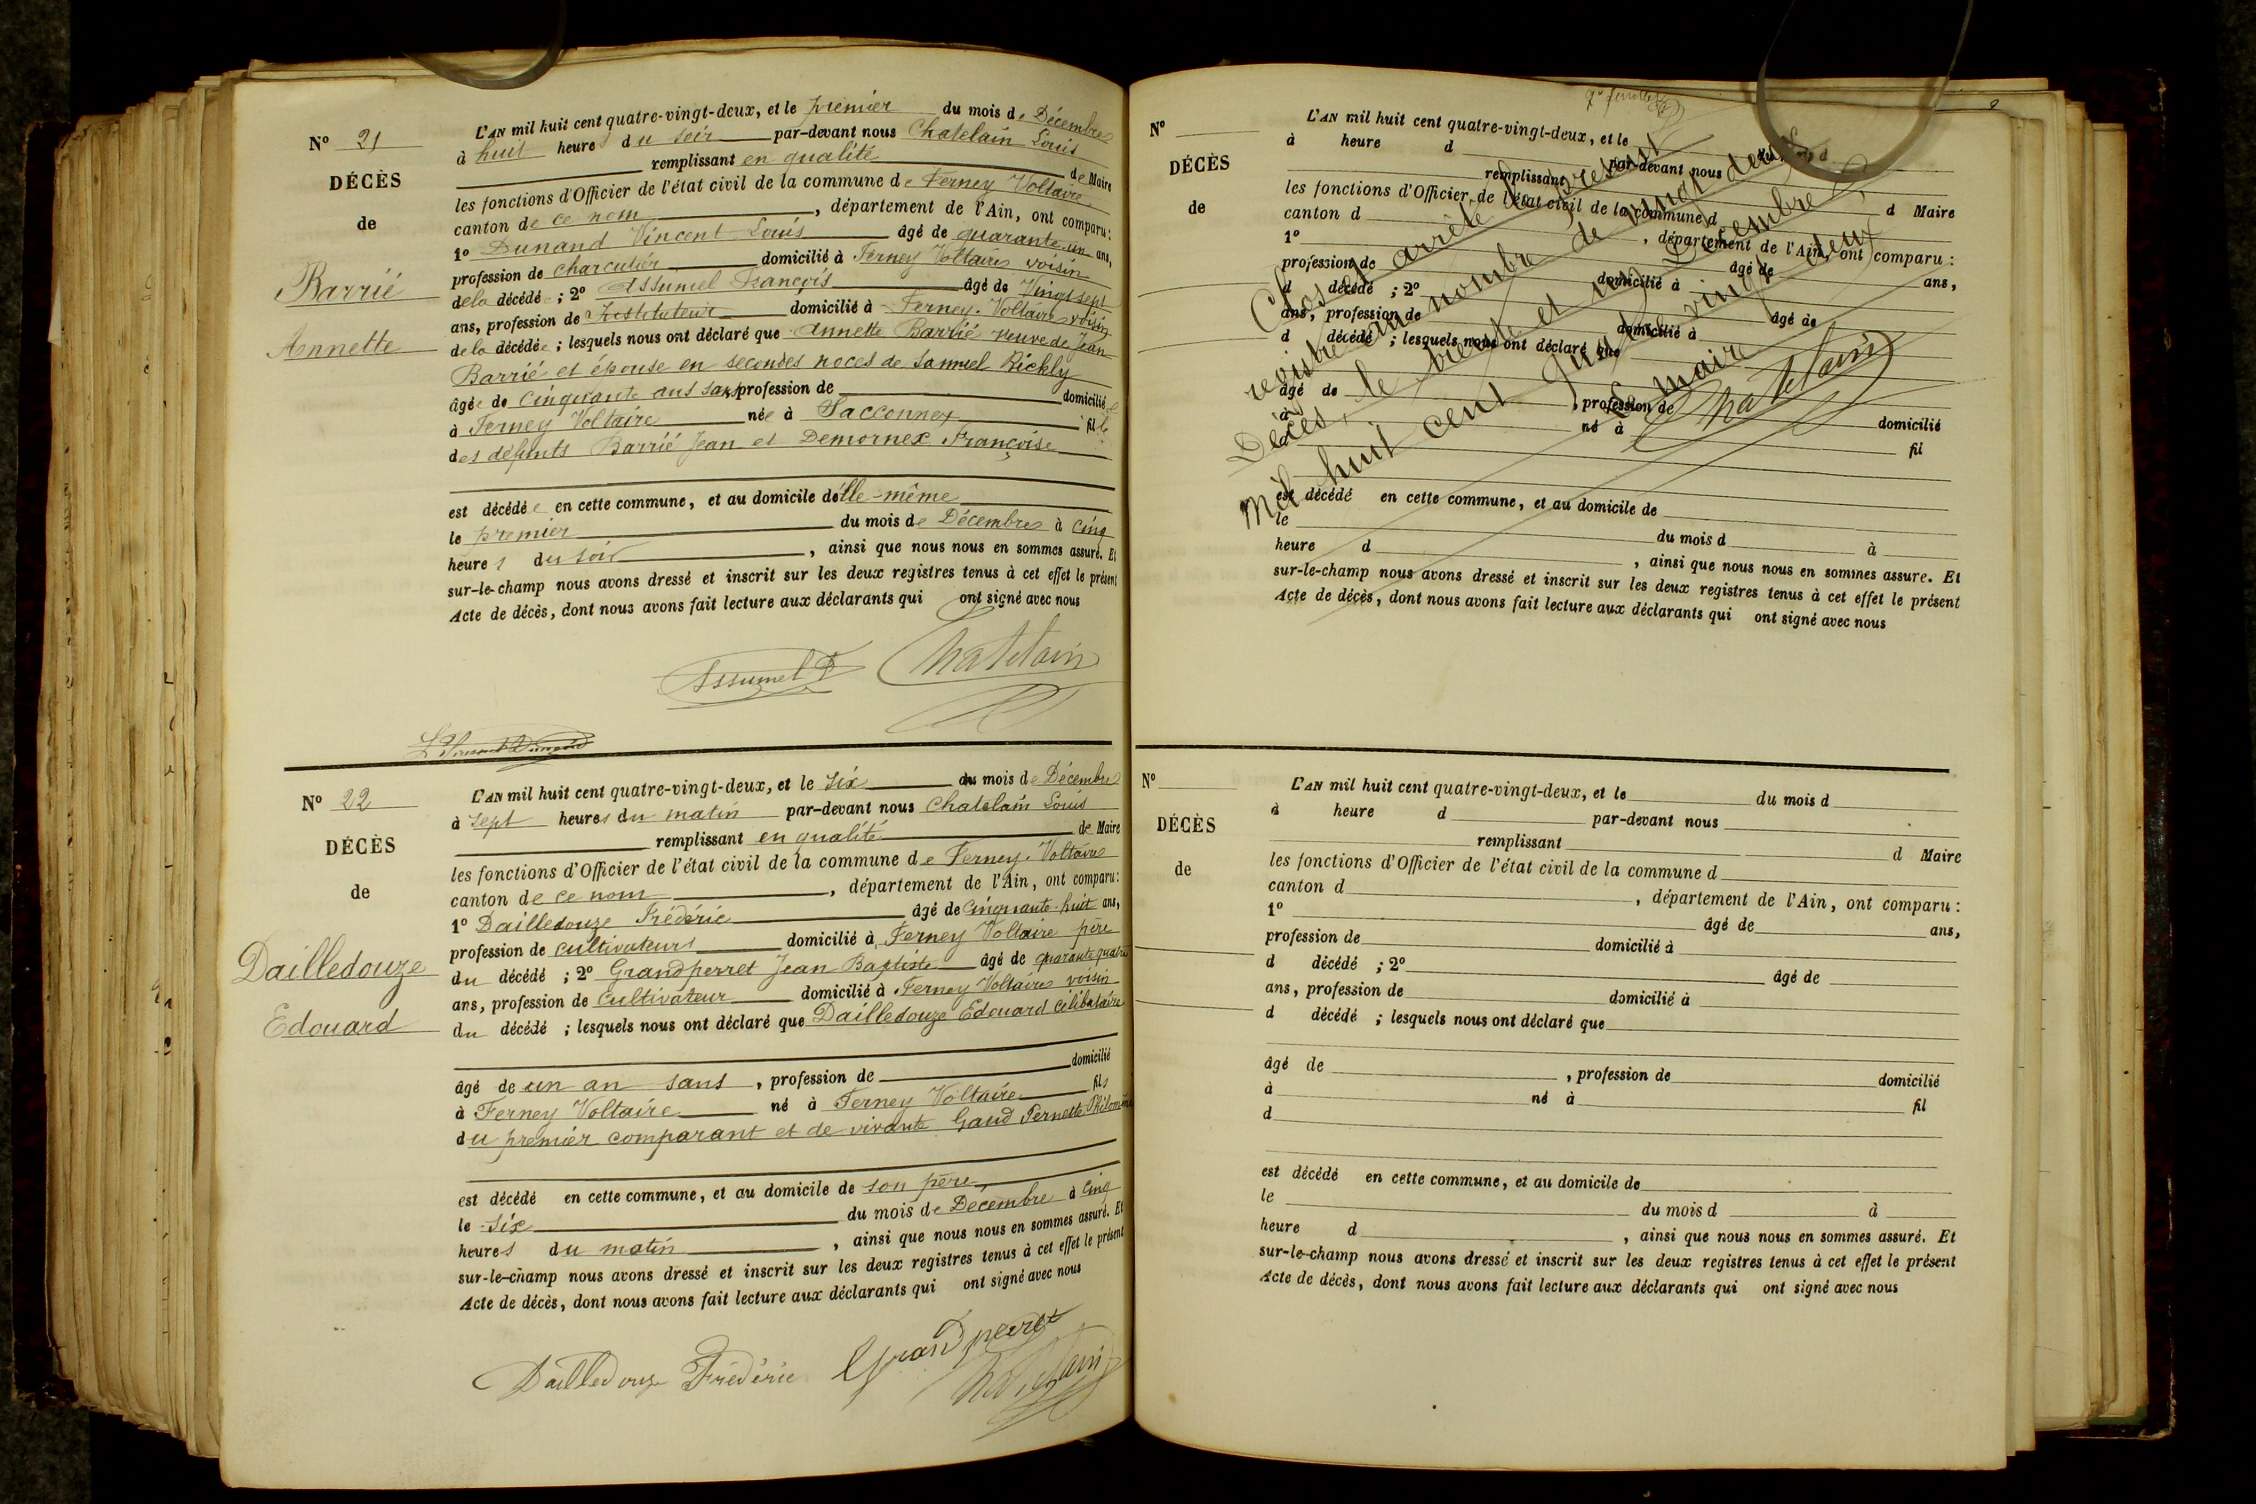 N° 21
DÉCÈS
de
Barrié
Annette
L'AN mil huit cent quatre-vingt-deux, et le premier du mois de Décembre
à huit heures du soir par-devant nous Chatelain Louis
remplissant en qualité de Maire
les fonctions d'Officier de l'état civil de la commune de Ferney Voltaire
canton de ce nom, département de l'Ain, ont comparu:
1° Dunand Vincent Louis âgé de quarante-un ans,
profession de charcutier domicilié à Ferney Voltaire voisin
de la décédée; 2° Assumel François âgé de vingt sept
ans, profession de Instituteur domicilié à Ferney-Voltaire voisin
de la décédée; lesquels nous ont déclaré que Annette Barrié veuve de Jean
Barrié et épouse en secondes noces de Samuel Rickly
âgée de cinquante ans sans profession de domiciliée
à Ferney Voltaire née à Sacconnex fille
des défunts Barrié Jean et Demornex Françoise
est décédée en cette commune, et au domicile d'elle-même
le premier du mois de Décembre à cinq
heures du soir, ainsi que nous nous en sommes assuré. Et
sur-le-champ nous avons dressé et inscrit sur les deux registres tenus à cet effet le présent
Acte de décès, dont nous avons fait lecture aux déclarants qui ont signé avec nous
Assumel F Chatelain
N° 22
DÉCÈS
de
Dailledouze
Edouard
L'AN mil huit cent quatre-vingt-deux, et le six du mois de Décembre
à sept heures du matin par-devant nous Chatelain Louis
remplissant en qualité de Maire
les fonctions d'Officier de l'état civil de la commune de Ferney-Voltaire
canton de ce nom, département de l'Ain, ont comparu:
1° Dailledouze Frédéric âgé de cinquante-huit ans,
profession de cultivateur domicilié à Ferney Voltaire père
du décédé; 2° Grandperret Jean Baptiste âgé de quarante quatre
ans, profession de cultivateur domicilié à Ferney Voltaire voisin
du décédé; lesquels nous ont déclaré que Dailledouze Edouard célibataire
domicilié
âgé de un an sans, profession de
à Ferney Voltaire né à Ferney Voltaire fils
du premier comparant et de vivante Gaud Pernette Philomène
est décédé en cette commune, et au domicile de son père
le six du mois de Décembre à cinq
heures du matin, ainsi que nous nous en sommes assuré. Et
sur-le-champ nous avons dressé et inscrit sur les deux registres tenus à cet effet le présent
Acte de décès, dont nous avons fait lecture aux déclarants qui ont signé avec nous
Dailledouze Frédéric Grandperret Chatelain
N°
DÉCÈS
de
L'AN mil huit cent quatre-vingt-deux, et le du mois d
à heure d par-devant nous
remplissant d Maire
les fonctions d'Officier de l'état civil de la commune d
canton d, département de l'Ain, ont comparu:
1° âgé de ans,
profession de domicilié à
d décédé; 2° âgé de
ans, profession de domicilié à
d décédé; lesquels nous ont déclaré que
âgé de, profession de domicilié
à né à fil
d
est décédé en cette commune, et au domicile de
le du mois d à
heure d, ainsi que nous nous en sommes assuré. Et
sur-le-champ nous avons dressé et inscrit sur les deux registres tenus à cet effet le présent
Acte de décès, dont nous avons fait lecture aux déclarants qui ont signé avec nous
Clos et arrêté le présent
registre au nombre de vingt deux
Décès, le trente et un Décembre
mil huit cent quatre vingt deux
Le maire
Chatelain
N°
DÉCÈS
de
L'AN mil huit cent quatre-vingt-deux, et le du mois d
à heure d par-devant nous
remplissant d Maire
les fonctions d'Officier de l'état civil de la commune d
canton d, département de l'Ain, ont comparu:
1° âgé de ans,
profession de domicilié à
d décédé; 2° âgé de
ans, profession de domicilié à
d décédé; lesquels nous ont déclaré que
âgé de, profession de domicilié
à né à fil
d
est décédé en cette commune, et au domicile de
le du mois d à
heure d, ainsi que nous nous en sommes assuré. Et
sur-le-champ nous avons dressé et inscrit sur les deux registres tenus à cet effet le présent
Acte de décès, dont nous avons fait lecture aux déclarants qui ont signé avec nous